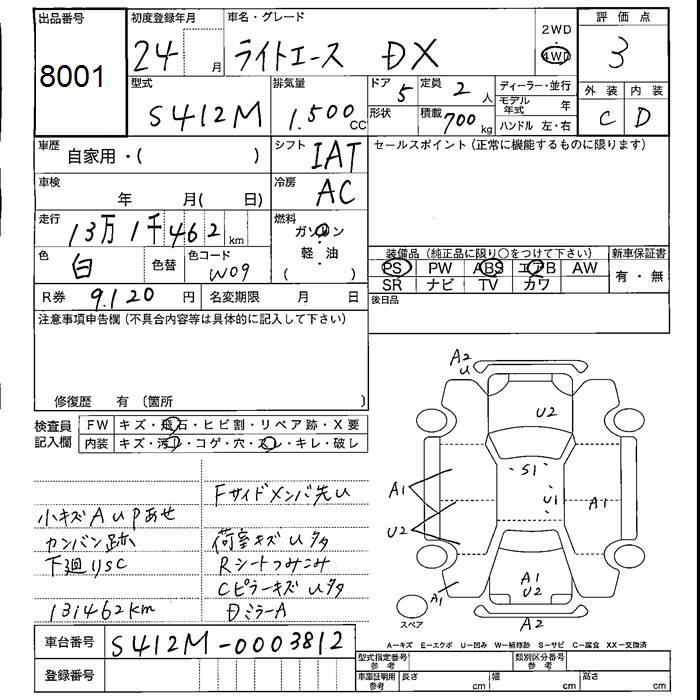 出品番号 初度登録年月 車名・グレード 2WD 評価点
8001 24 月 ライトエース DX 4WD 3
型式 排気量 ドア 定員 ディーラー・並行 外装 内装
S412M 1.500cc 5 2人 モデル年式 年 C D
形状 積載 700kg ハンドル 左・右
車歴 自家用・( ) シフト IAT セールスポイント (正常に機能するものに限ります)
車検 年 月( 日) 冷房 AC
走行 13万1千462km 燃料 ガソリン
色 白 色替 色コード W09 軽・油
( )
装備品 (純正品に限り○をつけて下さい) 新車保証書
PS PW ABS エアB AW 有・無
SR ナビ TV カワ
R券 9.120円 名変期限 月 日 後日品
注意事項申告欄 (不具合内容等は具体的に記入して下さい)
修復歴 有 〔箇所 〕
検査員記入欄 FW キズ・飛石・ヒビ割・リペア跡・X要
内装 キズ・汚レ・コゲ・穴・スレ・キレ・破レ
Fサイドメンバ先U
小キズAUPあせ
カンバン跡 荷室キズUタタ
下廻りSC Rシートつみこみ
CピラーキズUタタ
131462km DミラーA
A2
U
U2
S1
A1 U1 A1
U2
A1
A1
U2
スペア A2
A-キズ E-エクボ U-凹み W-補修跡 S-サビ C-腐食 XX-交換済
車台番号 S412M-0003812
登録番号
型式指定番号 参考 類別区分番号 参考
車庫証明用 参考 長さ cm 幅 cm 高さ cm